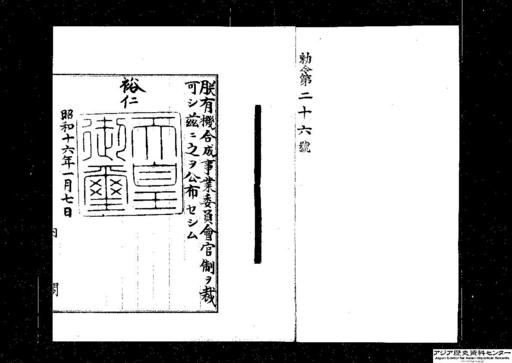 勅令第二十六號
朕有機合成事業委員會官制ヲ裁
可シ茲ニ之ヲ公布セシム
裕仁
天皇
御璽
昭和十六年一月七日
内閣
アジア歴史資料センター
Japan Center for Asian Historical Records